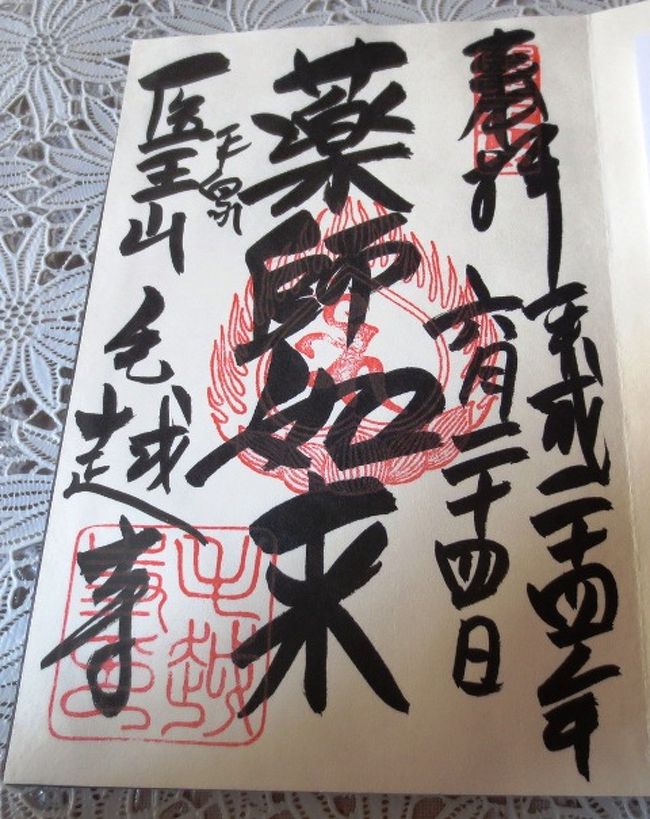 奉拝
平成二十四年
六月二十四日
薬師如来
平泉
医王山 毛越寺
毛越